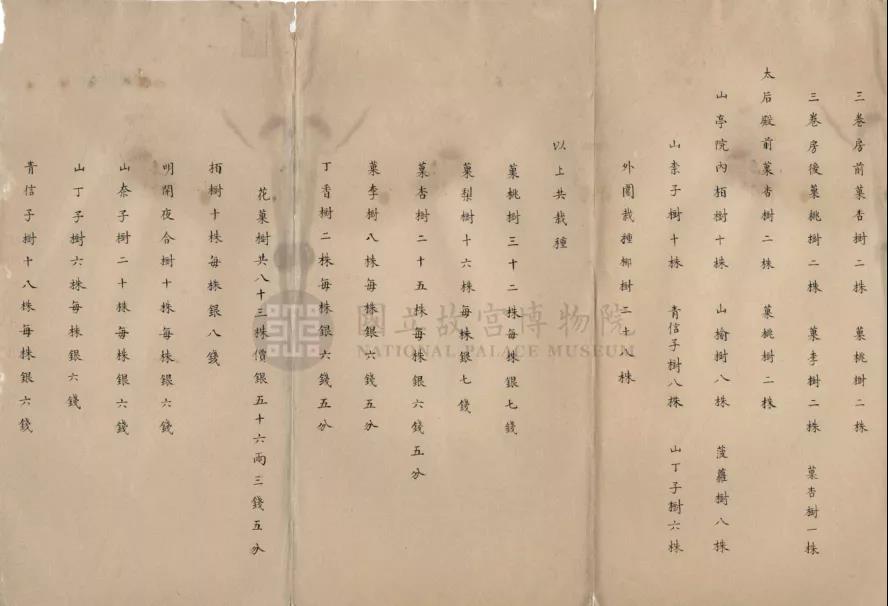 三卷房前菓杏樹二株 菓桃樹二株
三卷房後菓桃樹二株 菓李樹二株 菓杏樹一株
太后殿前菓杏樹二株 菓桃樹二株
山亭院內栢樹十株 山榆樹八株 菠蘿樹八株
山柰子樹十株 青信子樹八株 山丁子樹六株
外圍栽種柳樹二十八株
以上共栽種
菓桃樹三十二株每株銀七錢
菓梨樹十六株每株銀七錢
菓杏樹二十五株每株銀六錢五分
菓李樹八株每株銀六錢五分
丁香樹二株每株銀六錢五分
花菓樹共八十三株價銀五十六兩三錢五分
栢樹十株每株銀八錢
明開夜合樹十株每株銀六錢
山柰子樹二十株每株銀六錢
山丁子樹六株每株銀六錢
青信子樹十八株每株銀六錢
國立故宮博物院
NATIONAL PALACE MUSEUM